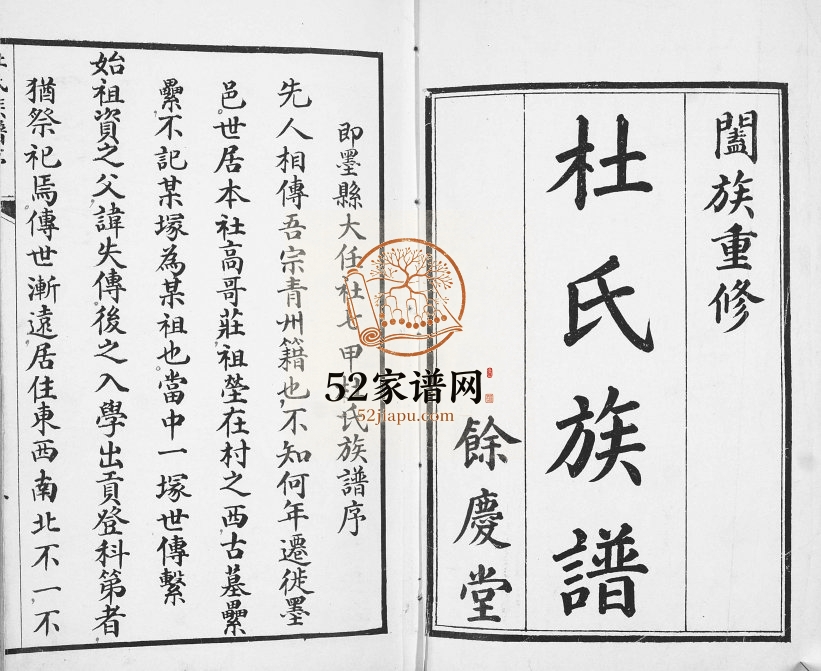 闔族重修
杜氏族譜
餘慶堂
即墨縣大任社七甲杜氏族譜序
先人相傳吾宗青州籍也不知何年遷徙墨
邑世居本社高哥莊祖塋在村之西古墓纍
纍不記某塚為某祖也當中一塚世傳繫
始祖資之父諱失傳後之入學出貢登科第者
猶祭祀焉傳世漸遠居住東西南北不一不
杜氏族譜
52家谱网
52jiapu.com